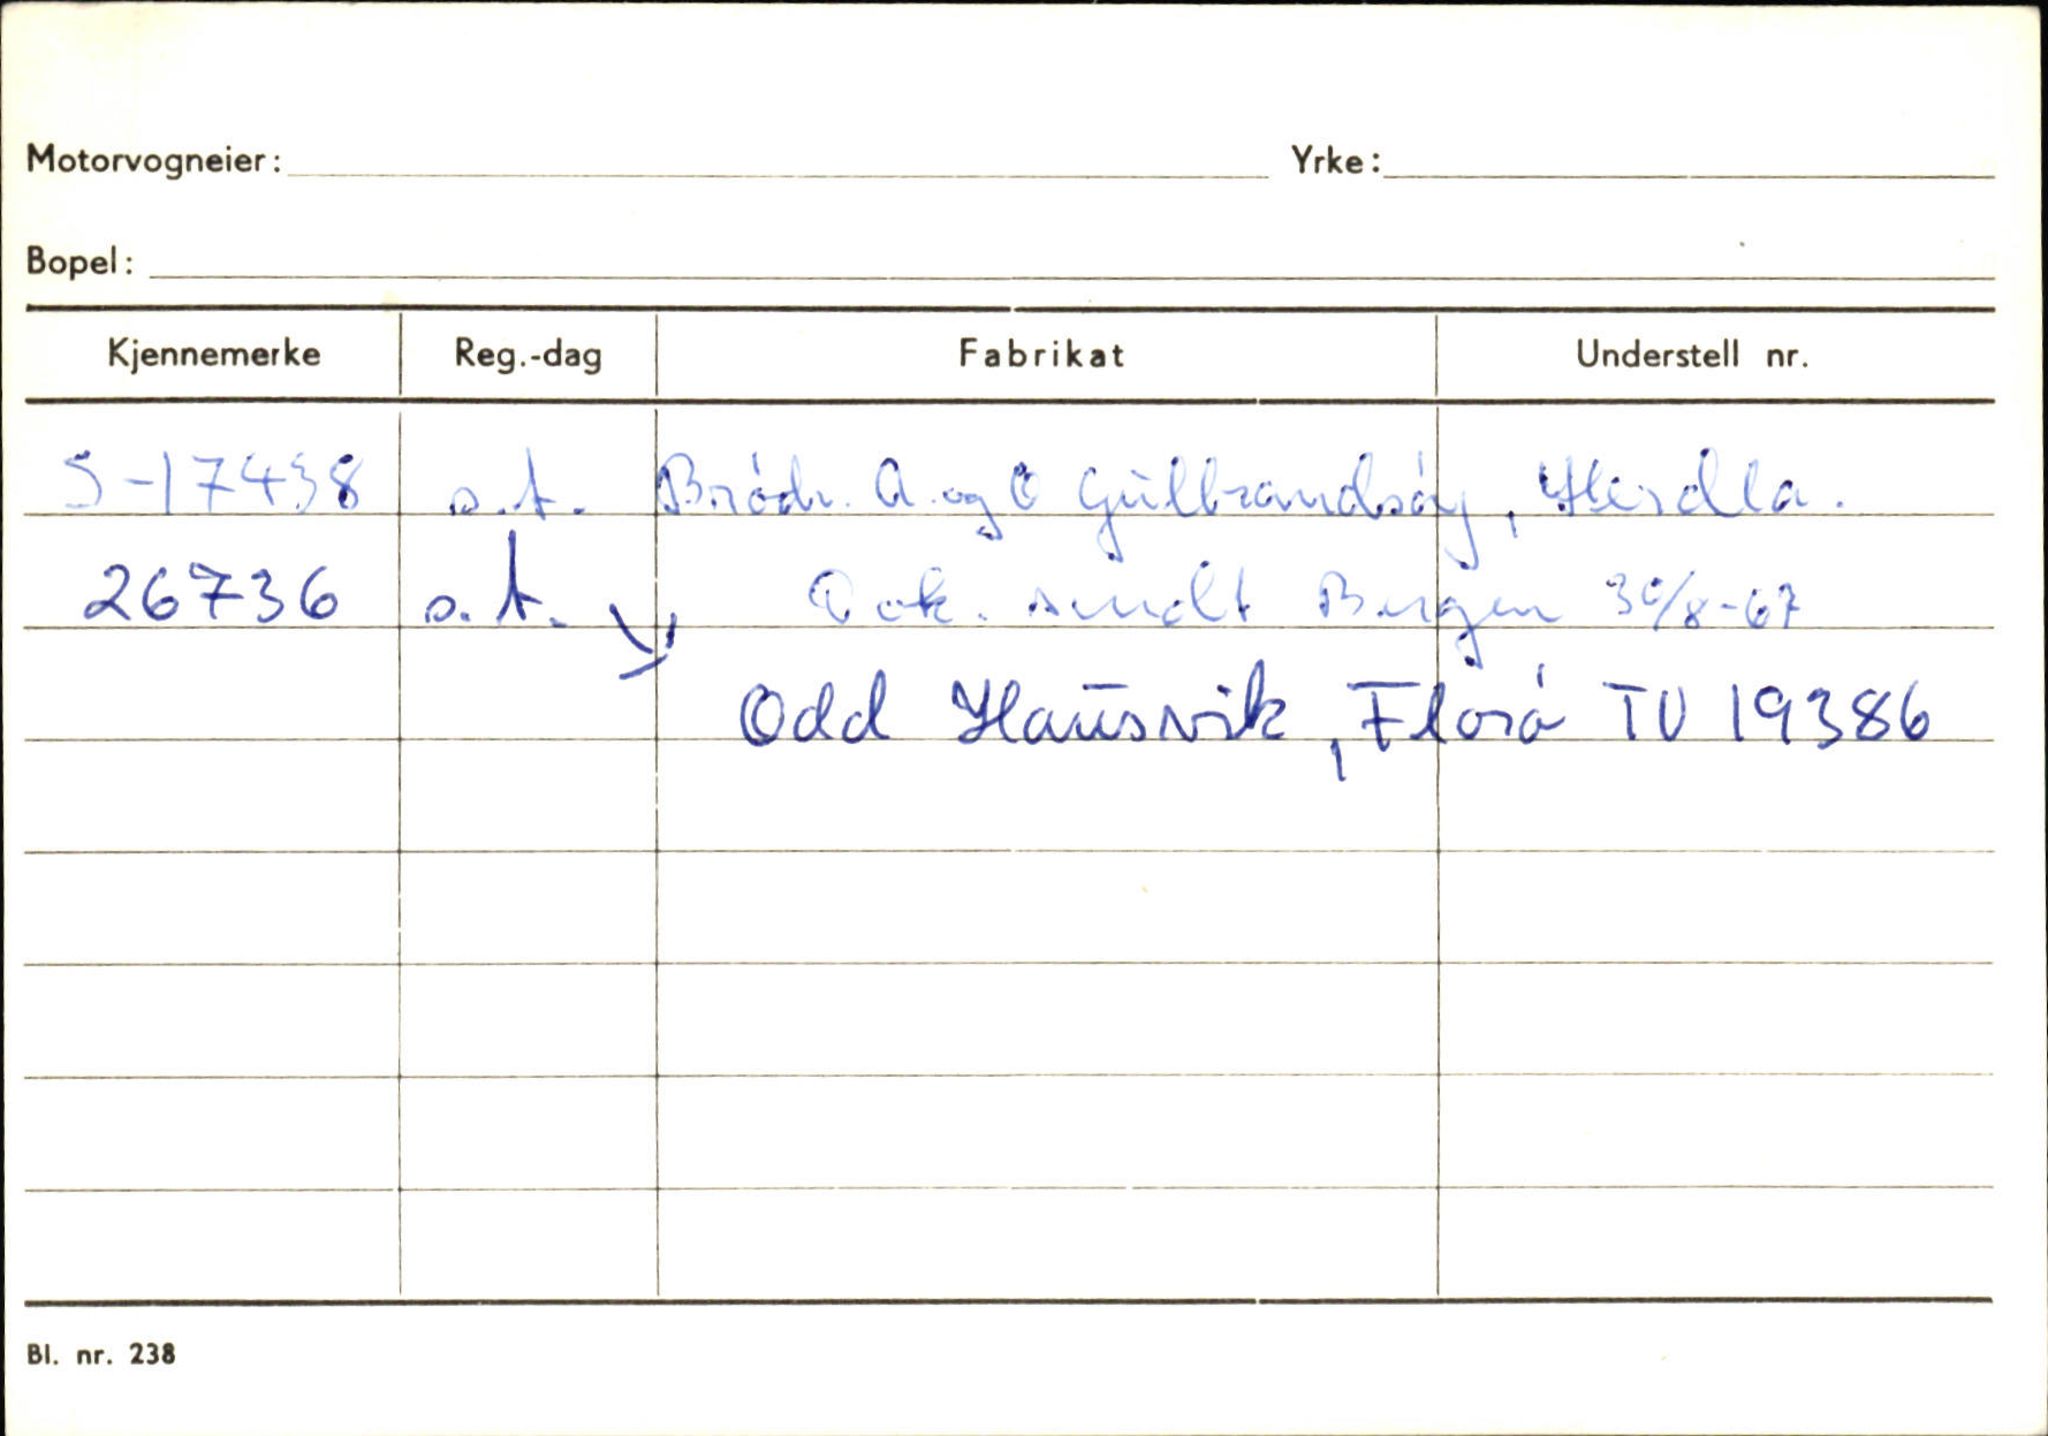 Motorvogneier: Yrke:
Bopel:
Kjennemerke Reg.-dag Fabrikat Understell nr.
S-17438 o.t. Brødr. A. og O Gulbrandsøy, Herdla.
26736 o.t. Dok. sendt Bergen 30/8-67
Odd Hausvik, Florø TU 19386
Bl. nr. 238